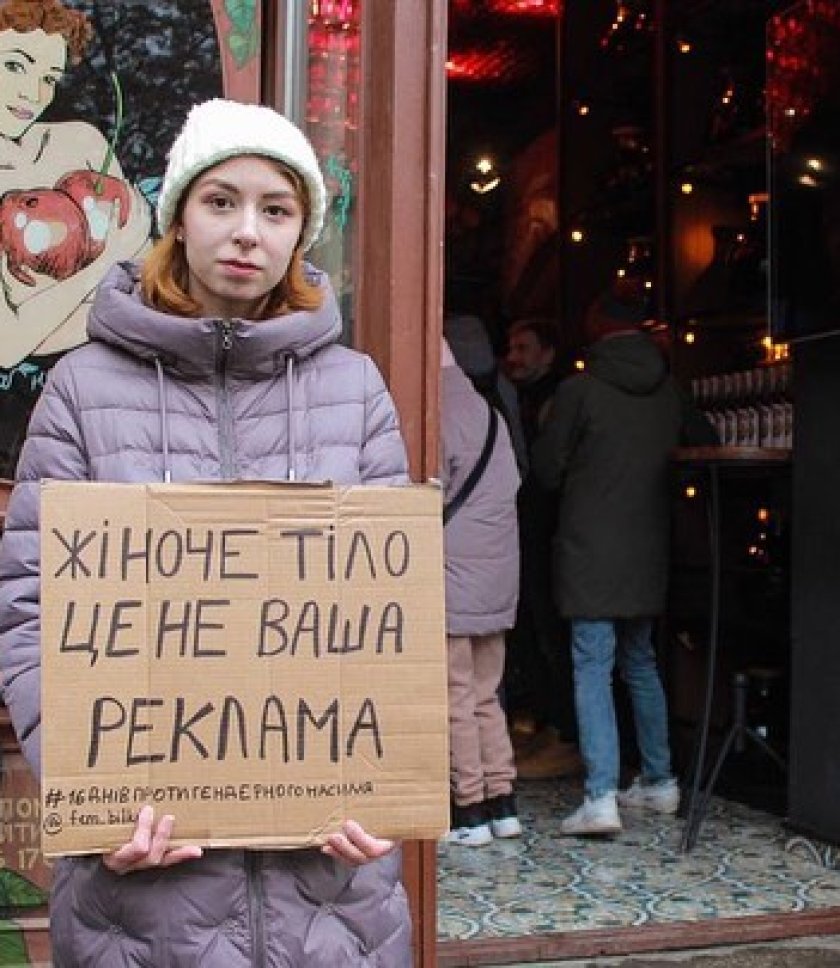 ЖІНОЧЕ ТІЛО
ЦЕ НЕ ВАША
РЕКЛАМА
#16ДНІВПРОТИГЕНДЕРНОГОНАСИЛЛЯ